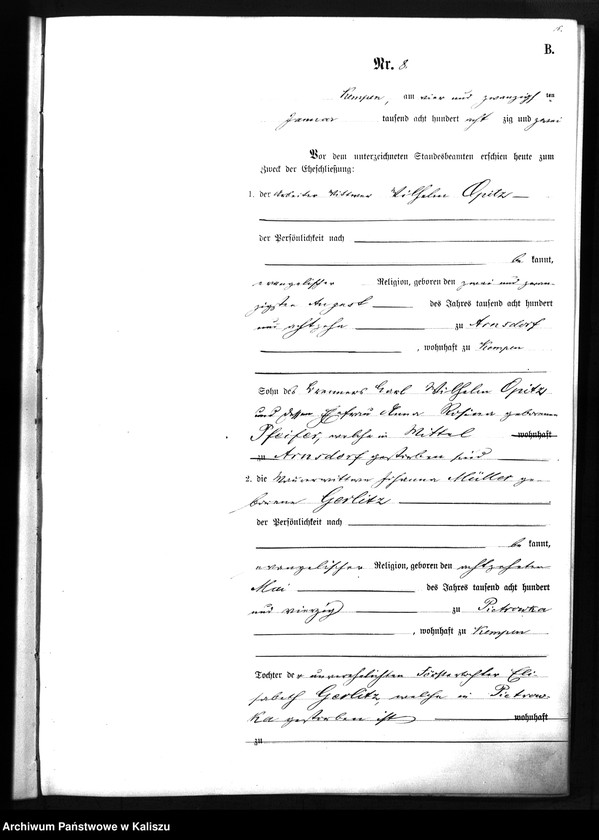 B.
Nr. 8.
Kempen, am vier und zwanzigsten
Januar tausend acht hundert achtzig und zwei
Vor dem unterzeichneten Standesbeamten erschien heute zum
Zweck der Eheschließung:
1. der Arbeiter Wittwer Wilhelm Opitz
der Persönlichkeit nach
bekannt,
evangelischer Religion, geboren den zwei und zwan-
zigsten August des Jahres tausend acht hundert
und achtzehn zu Arnsdorf
, wohnhaft zu Kempen
Sohn des Carl Wilhelm Opitz
und dessen Ehefrau Anna Rosina geborenen
Pfeifer, welche in Mittel wohnhaft
zu Arnsdorf gestorben sind
2. die Johanna Müller ge-
borene Gerlitz
der Persönlichkeit nach
bekannt,
evangelischer Religion, geboren den achtzehnten
Mai des Jahres tausend acht hundert
und vierzig zu Pietrowka
, wohnhaft zu Kempen
Tochter der unverehelichten Försterstochter Eli-
sabeth Gerlitz, welche in Pietrow-
ka gestorben ist wohnhaft
zu
Archiwum Państwowe w Kaliszu